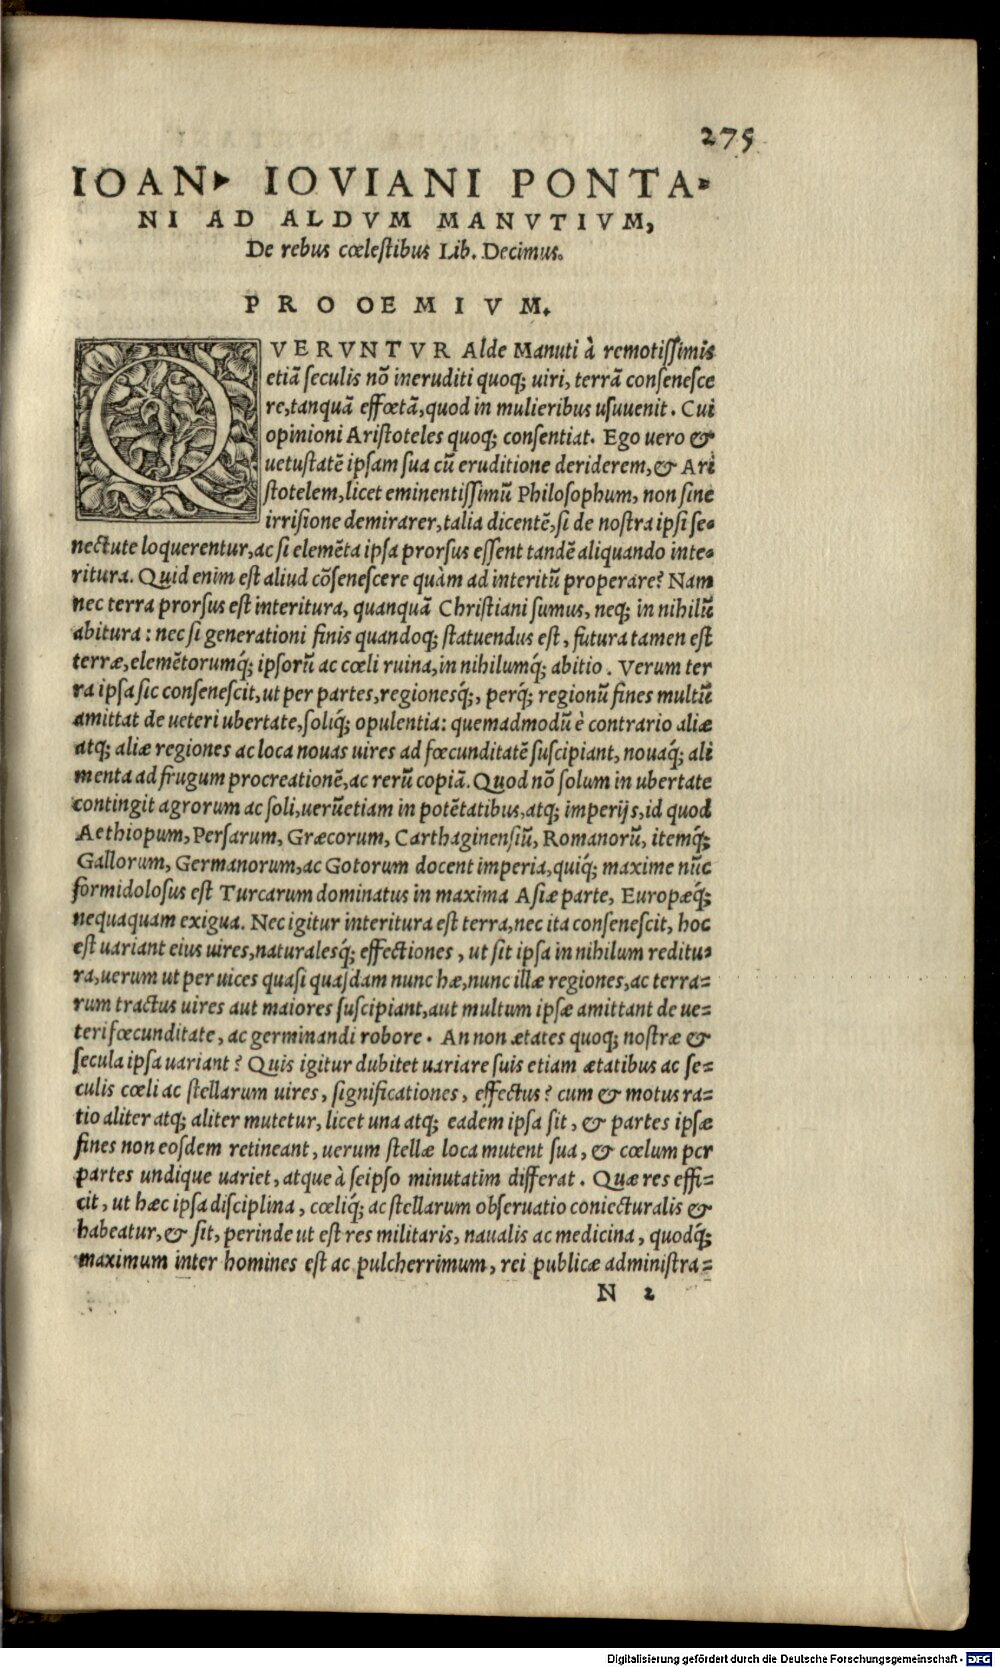 275
IOAN. IOVIANI PONTA-
NI AD ALDVM MANVTIVM,
De rebus cœlestibus Lib. Decimus.
PROOEMIVM.
QVERVNTVR Alde Manuti à remotissimis
etiã seculis nõ ineruditi quoq; uiri, terrã consenesce
re, tanquã effœtã, quod in mulieribus usuuenit. Cui
opinioni Aristoteles quoq; consentiat. Ego uero &
uetustatẽ ipsam sua cũ eruditione deriderem, & Ari
stotelem, licet eminentissimũ Philosophum, non sine
irrisione demirarer, talia dicentẽ, si de nostra ipsi se-
nectute loquerentur, ac si elemẽta ipsa prorsus essent tandẽ aliquando inte-
ritura. Quid enim est aliud cõsenescere quàm ad interitũ properare? Nam
nec terra prorsus est interitura, quanquã Christiani sumus, neq; in nihilũ
abitura: nec si generationi finis quandoq; statuendus est, futura tamen est
terræ, elemẽtorumq́; ipsorũ ac cœli ruina, in nihilumq́; abitio. Verum ter
ra ipsa sic consenescit, ut per partes, regionesq́;, perq́; regionũ fines multũ
amittat de ueteri ubertate, soliq́; opulentia: quemadmodũ è contrario aliæ
atq; aliæ regiones ac loca nouas uires ad fœcunditatẽ suscipiant, nouaq́; ali
menta ad frugum procreationẽ, ac rerũ copiã. Quod nõ solum in ubertate
contingit agrorum ac soli, uerũetiam in potẽtatibus, atq; imperijs, id quod
Aethiopum, Persarum, Græcorum, Carthaginensiũ, Romanorũ, itemq́;
Gallorum, Germanorum, ac Gotorum docent imperia, quiq́; maxime nũc
formidolosus est Turcarum dominatus in maxima Asiæ parte, Europæq́;
nequaquam exigua. Nec igitur interitura est terra, nec ita consenescit, hoc
est uariant eius uires, naturalesq́; effectiones, ut sit ipsa in nihilum reditu-
ra, uerum ut per uices quasi quasdam nunc hæ, nunc illæ regiones, ac terra-
rum tractus uires aut maiores suscipiant, aut multum ipsæ amittant de ue-
teri fœcunditate, ac germinandi robore. An non ætates quoq; nostræ &
secula ipsa uariant? Quis igitur dubitet uariare suis etiam ætatibus ac se-
culis cœli ac stellarum uires, significationes, effectus? cum & motus ra-
tio aliter atq; aliter mutetur, licet una atq; eadem ipsa sit, & partes ipsæ
fines non eosdem retineant, uerum stellæ loca mutent sua, & cœlum per
partes undique uariet, atque à seipso minutatim differat. Quæ res effi-
cit, ut hæc ipsa disciplina, cœliq́; ac stellarum obseruatio coniecturalis &
habeatur, & sit, perinde ut est res militaris, naualis ac medicina, quodq́;
maximum inter homines est ac pulcherrimum, rei publicæ administra-
N 2
Digitalisierung gefördert durch die Deutsche Forschungsgemeinschaft - DFG